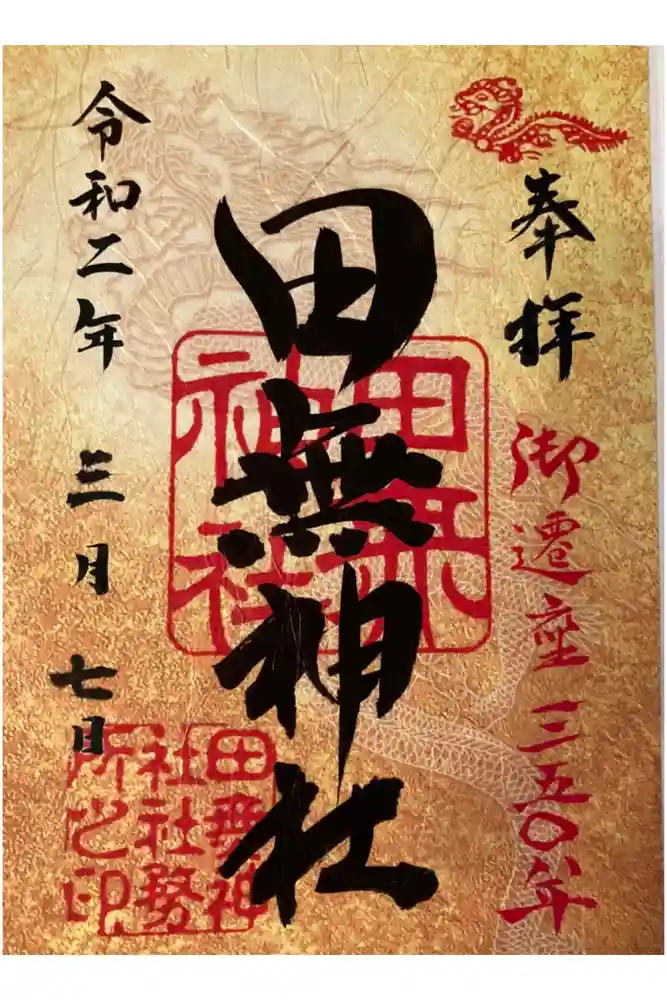 奉拝
御遷座三五〇年
田無神社
令和二年 三月 七日
田無神社
田無神社社務所之印